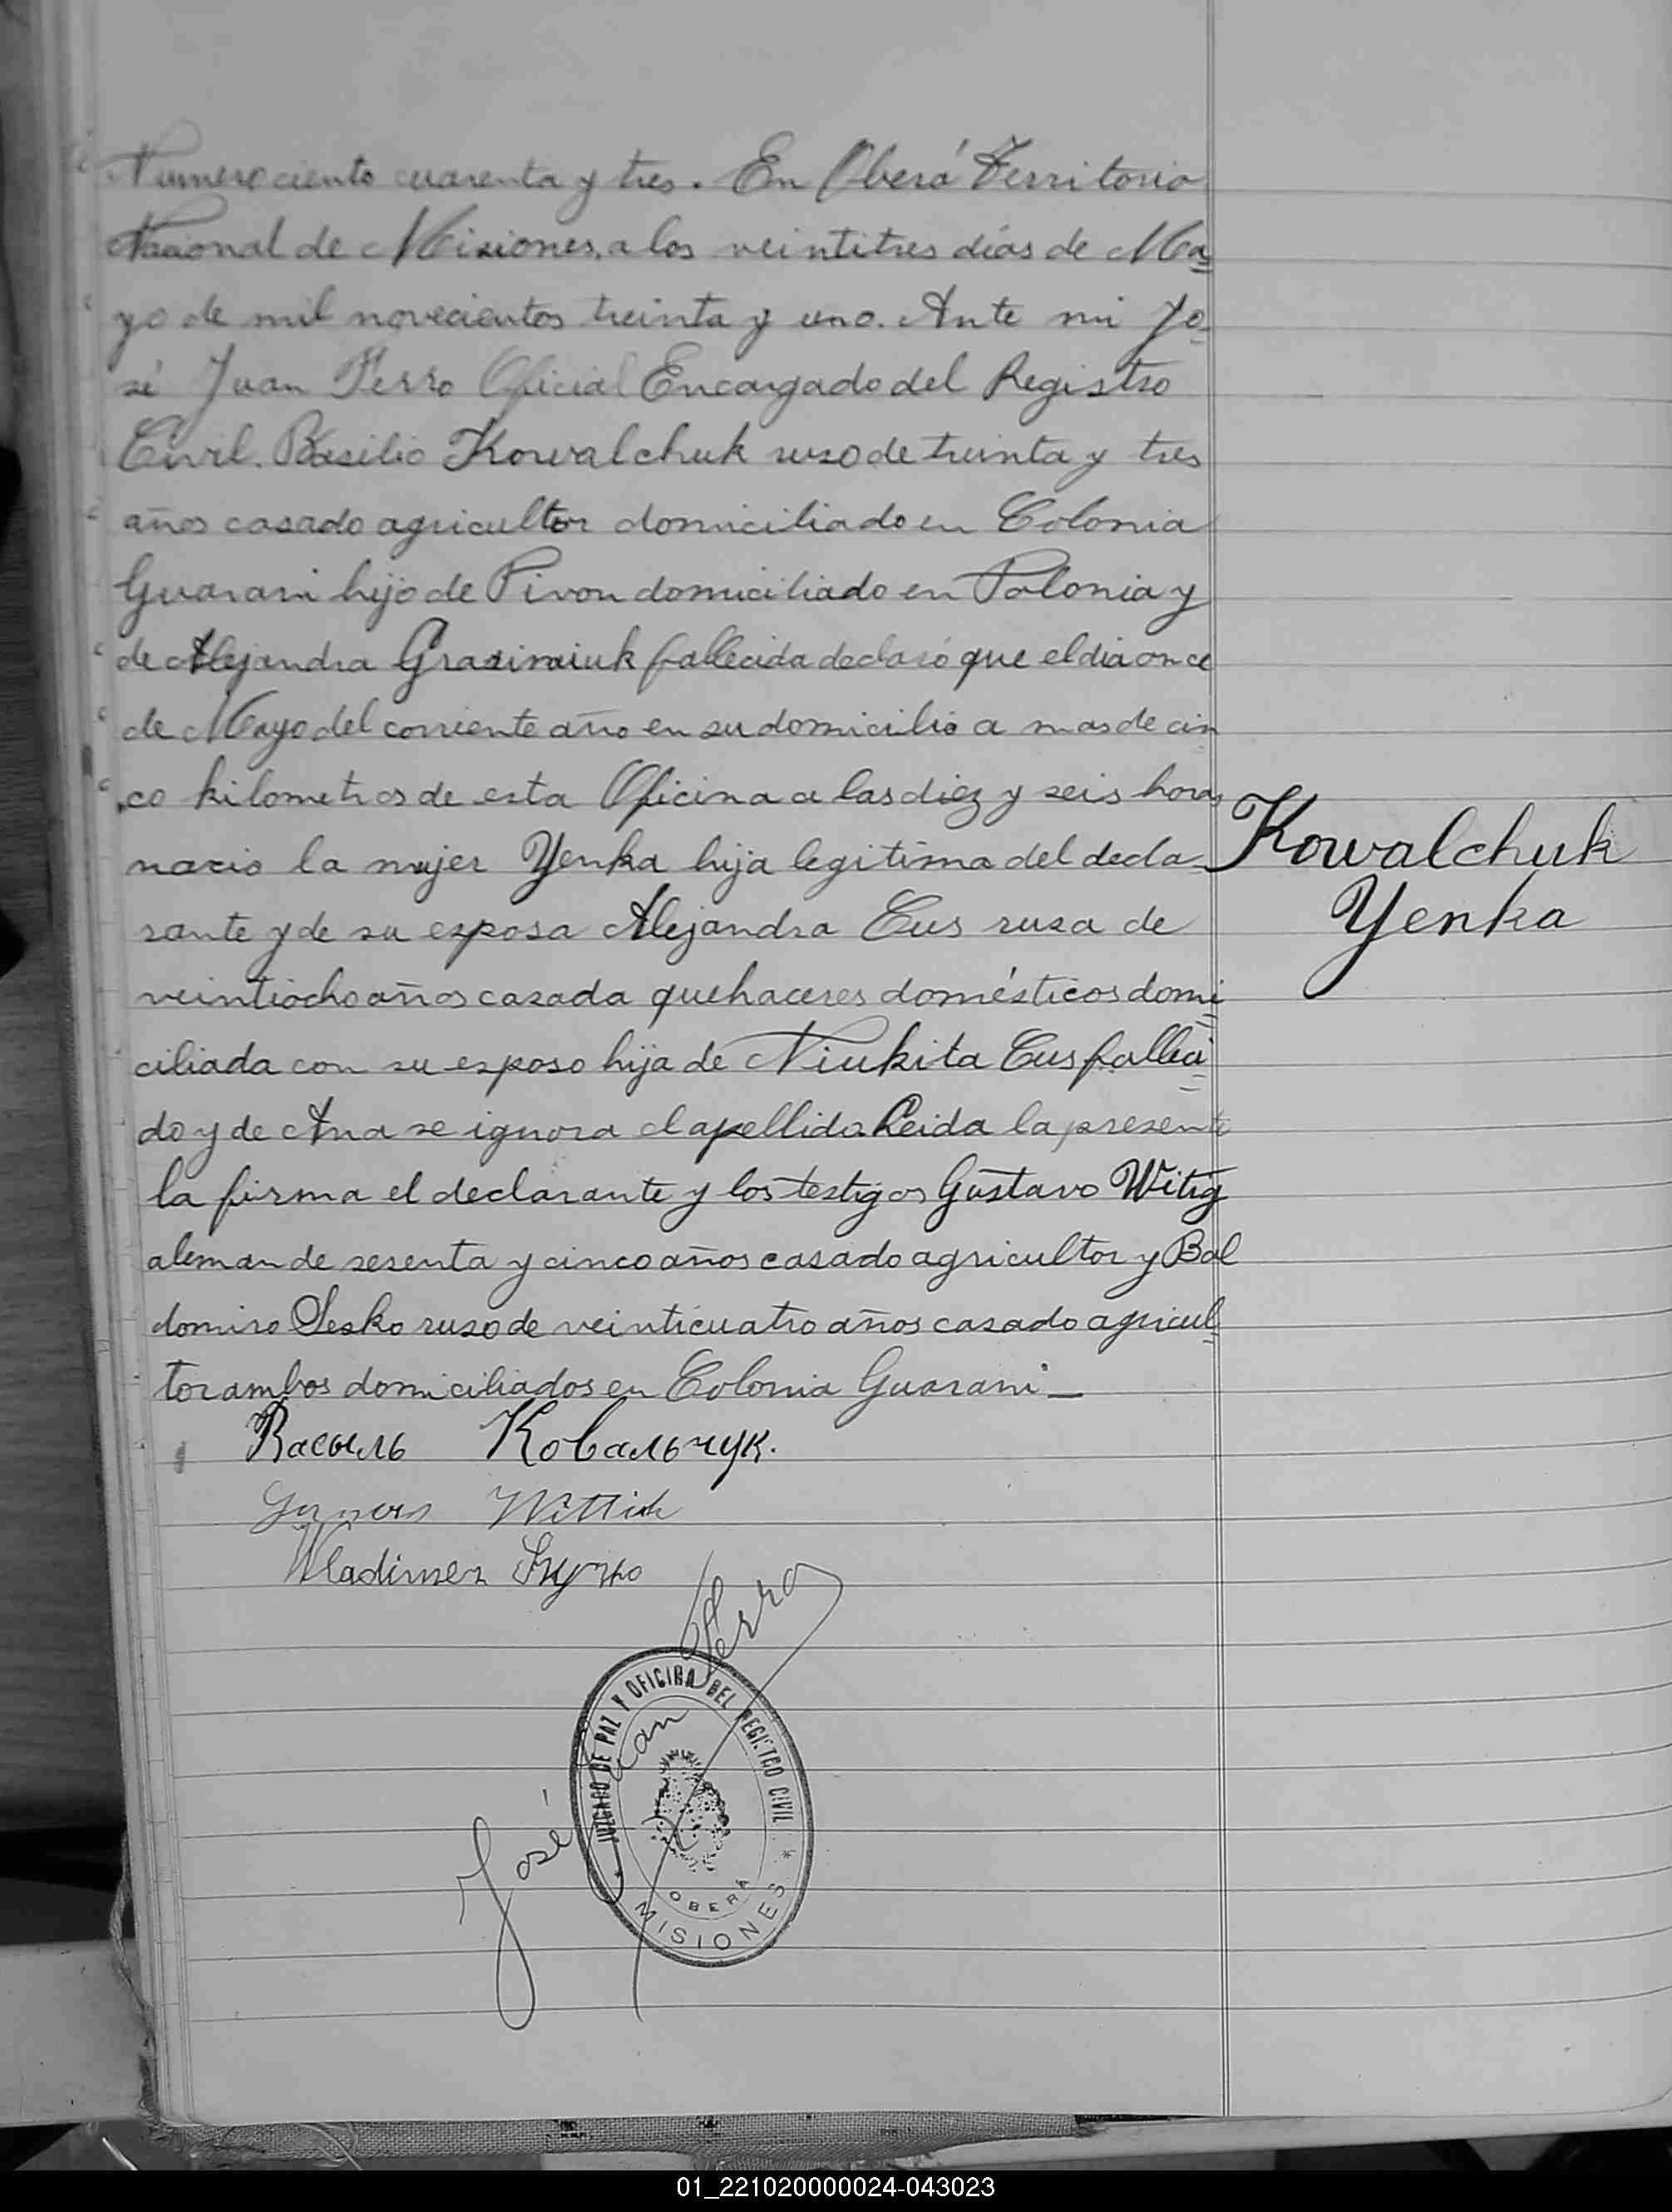 Numero ciento cuarenta y tres. En Oberá Territorio
Nacional de Misiones, a los veintitres días de Ma=
yo de mil novecientos treinta y uno. Ante mi Jo=
sé Juan Ferro Oficial Encargado del Registro
Civil. Basilio Kowalchuk ruso de treinta y tres
años casado agricultor domiciliado en Colonia
Guarani hijo de Pivon domiciliado en Polonia y
de Alejandra Grasimiuk fallecida declaró que el dia once
de Mayo del corriente año en su domicilio a mas de cin
co kilometros de esta Oficina a las diez y seis horas
nacio la mujer Yenka hija legitima del decla-
rante y de su esposa Alejandra Cus rusa de
veintiocho años casada quehaceres domésticos domi=
ciliada con su esposo hija de Niukita Cus falleci=
do y de Ana se ignora el apellido. Leida la presente
la firma el declarante y los testigos Gustavo Witig
aleman de sesenta y cinco años casado agricultor y Bal
domiro Sesko ruso de veinticuatro años casado agricul=
tor ambos domiciliados en Colonia Guarani —
Kowalchuk
Yenka
Василь Ковальчук.
Wittich
Wladimer
José Juan Ferro
JUZGADO DE PAZ Y OFICINA DEL REGISTRO CIVIL
OBERÁ
* MISIONES *
01_221020000024-043023